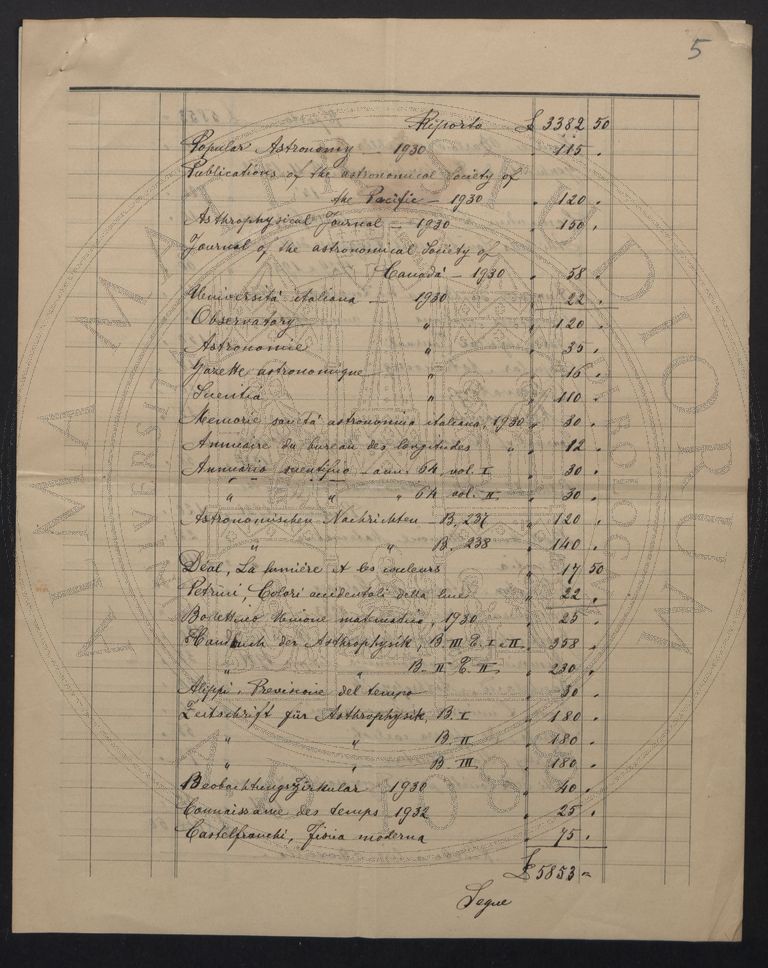 5
Riporto £ 3382 50
Popular Astronomy - 1930 " 115 "
Publications of the astronomical Society of
the Pacific - 1930 " 120 "
Asthrophysical Journal - 1930 " 150 "
Journal of the astronomical Society of
Canadà - 1930 " 58 "
Università italiana - 1930 " 22 "
Observatory " " 120 "
Astronomie " " 35 "
Gazette astronomique " " 16 "
Scientia " " 110 "
Memorie società astronomica italiana, 1930 " 80 "
Annuaire du bureau des longitudes " " 12 "
Annuario scientifico - anni 64 vol. I " 30 "
" " " 64 vol. II " 30 "
Astronomischen Nachrichten - B. 237 " 120 "
" " B. 238 " 140 "
Déal, La lumière et les couleurs " 17 50
Petrini, Colori accidentali della luce " 22 "
Bollettino Unione matematica, 1930 " 25 "
Handbuch der Asthrophysik, B III T. I e II " 358 "
" " B. II T. II " 230 "
Alippi, Previsione del tempo " 30 "
Zeitschrift für Asthrophysik, B. I " 180 "
" " B. II " 180 "
" " B III " 180 "
Beobachtungszirkular 1930 " 40 "
Connaissance des temps 1932 " 25 "
Castelfranchi, Fisica moderna " 75 "
£ 5853 "
Segue